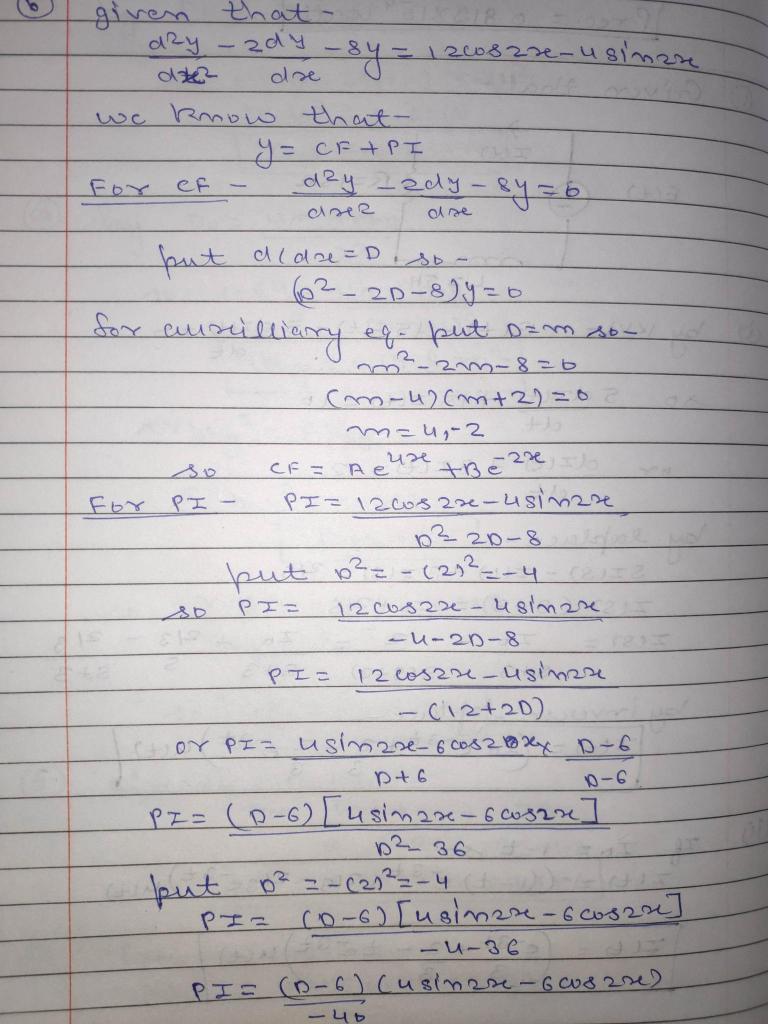 (b) given that -
d²y/dx² - 2dy/dx - 8y = 12cos2x - 4sin2x
we know that -
y = CF + PI
For CF - d²y/dx² - 2dy/dx - 8y = 0
put d/dx = D so -
(D² - 2D - 8)y = 0
for auxilliary eq. put D = m so -
m² - 2m - 8 = 0
(m-4)(m+2) = 0
m = 4, -2
so CF = Ae^4x + Be^-2x
For PI - PI = (12cos2x - 4sin2x)/(D² - 2D - 8)
put D² = -(2)² = -4
so PI = (12cos2x - 4sin2x)/(-4 - 2D - 8)
PI = (12cos2x - 4sin2x)/(-(12+2D))
or PI = (4sin2x - 6cos2x)/(D+6) × (D-6)/(D-6)
PI = (D-6)[4sin2x - 6cos2x]/(D² - 36)
put D² = -(2)² = -4
PI = (D-6)[4sin2x - 6cos2x]/(-4-36)
PI = (D-6)(4sin2x - 6cos2x)/(-40)